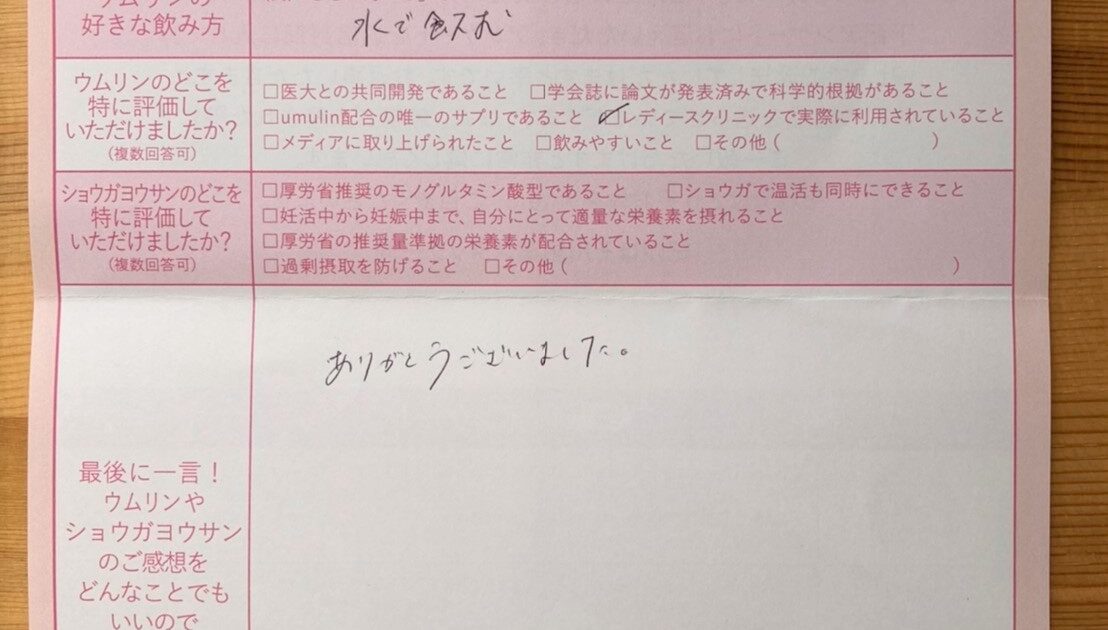 ウムリンの
好きな飲み方
水で飲む
ウムリンのどこを
特に評価して
いただけましたか?
(複数回答可)
□医大との共同開発であること □学会誌に論文が発表済みで科学的根拠があること
□umulin配合の唯一のサプリであること ☑レディースクリニックで実際に利用されていること
□メディアに取り上げられたこと □飲みやすいこと □その他( )
ショウガヨウサンのどこを
特に評価して
いただけましたか?
(複数回答可)
□厚労省推奨のモノグルタミン酸型であること □ショウガで温活も同時にできること
□妊活中から妊娠中まで、自分にとって適量な栄養素を摂れること
□厚労省の推奨量準拠の栄養素が配合されていること
□過剰摂取を防げること □その他( )
ありがとうございました。
最後に一言!
ウムリンや
ショウガヨウサン
のご感想を
どんなことでも
いいので